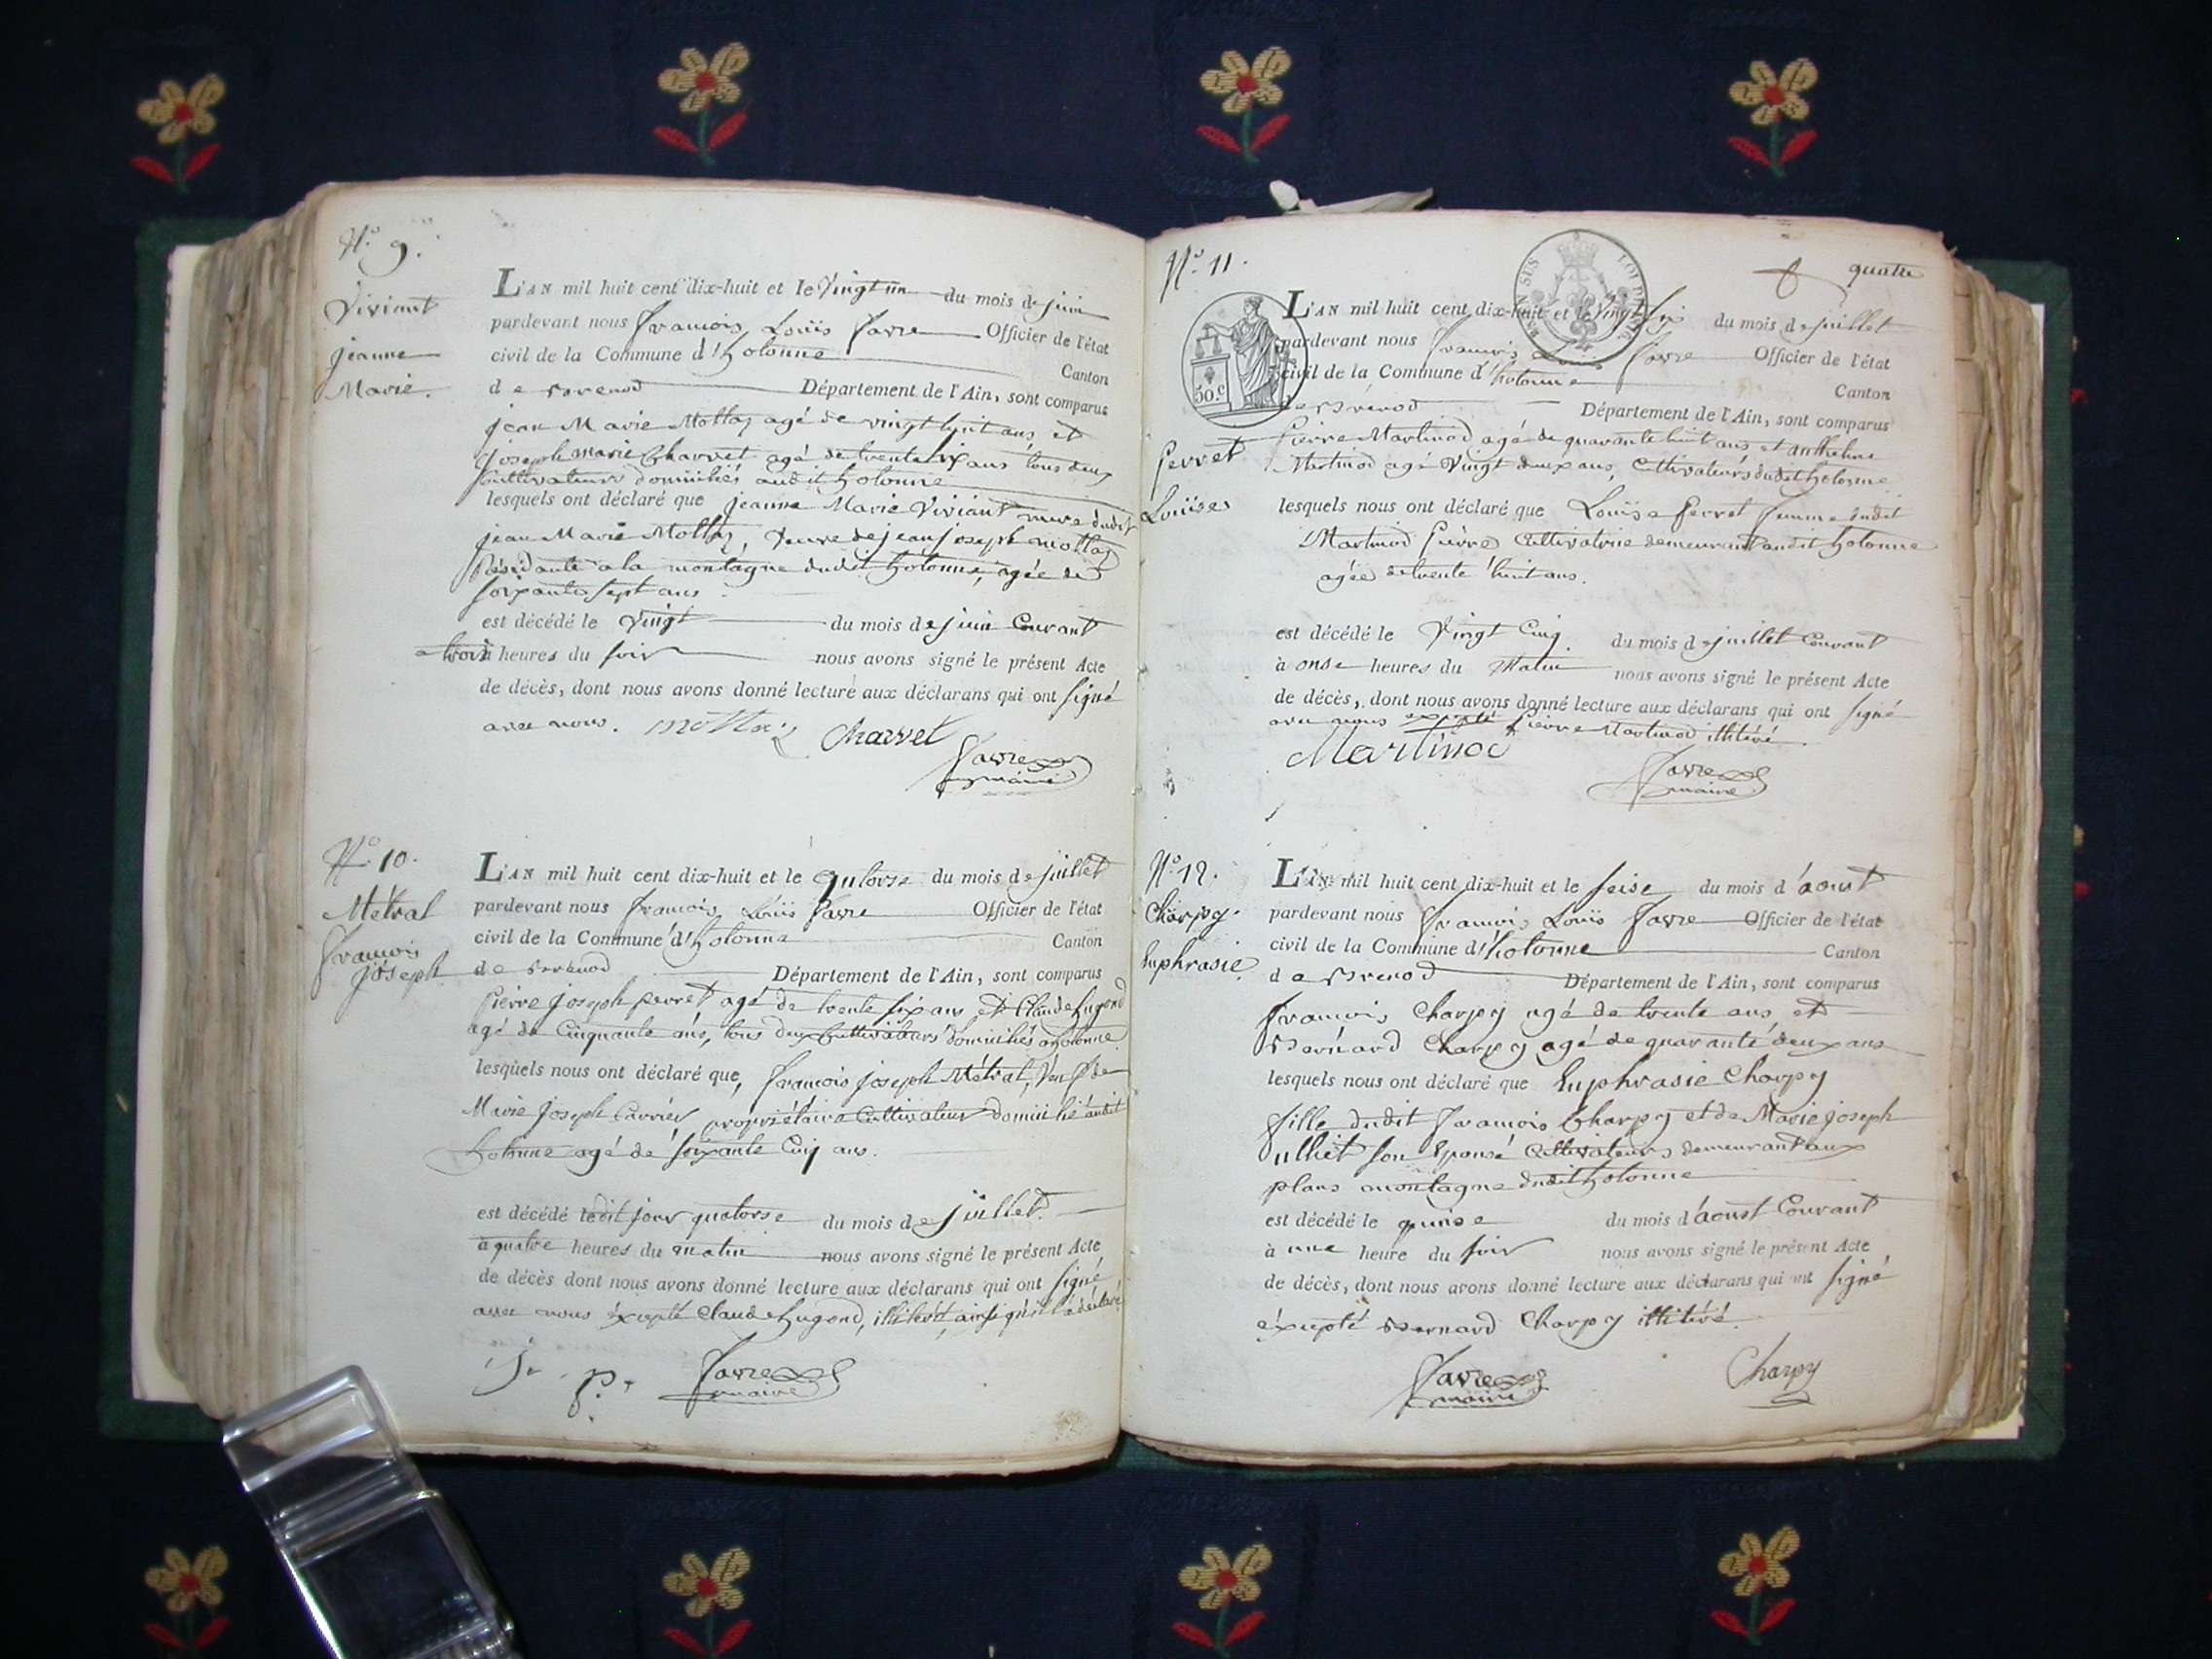 N.° 9.
Viviant
jeanne
Marie.
L'AN mil huit cent dix-huit et le Vingt un du mois de juin
pardevant nous francois Louis favre Officier de l'état
civil de la Commune d'hotonne Canton
de Brenod Département de l'Ain, sont comparus
jean Marie Mollaz agé de vingt huit ans et
joseph marie Charvet agé de trente six ans tous deux
Cultivateurs domiciliés audit hotonne
lesquels ont déclaré que jeanne Marie Viviant mere dudit
jean Marie Mollaz, veuve de jean joseph mollaz
Résidante a la montagne dudit hotonne, agée de
soixante sept ans
est décédé le vingt du mois de juin Courant
a trois heures du soir nous avons signé le présent Acte
de décès, dont nous avons donné lecture aux déclarans qui ont signé
avec nous. Charvet
favre
maire
N.° 10.
Métral
francois
joseph
L'AN mil huit cent dix-huit et le du mois de juillet
pardevant nous francois Louis favre Officier de l'état
civil de la Commune d'hotonne Canton
de Brenod Département de l'Ain, sont comparus
Pierre joseph perret, agé de trente six ans et Claude hugond
agé de Cinquante ans, tous deux Cultivateurs domiciliés a hotonne
lesquels nous ont déclaré que, francois joseph Métral, veuf de
Marie joseph Carrier propriétaire Cultivateur domicilié audit
hotonne agé de soixante Cinq ans.
est décédé ledit jour quatorse du mois de juillet.
à quatre heures du matin nous avons signé le présent Acte
de décès dont nous avons donné lecture aux déclarans qui ont signé
avec nous éxcepté Claude hugond, illitéré, ainsi qu'il l'a déclaré
j. p.
favre
maire
N.° 11.
quatre
50.c
Perret
Louise
L'AN mil huit cent dix-huit et le vingt six du mois de juillet
pardevant nous francois Louis favre Officier de l'état
civil de la Commune d'hotonne Canton
de Brenod Département de l'Ain, sont comparus
Pierre Martinod agé de quarante huit ans, et anthelme
Martinod agé vingt deux ans, Cultivateurs dudit hotonne
lesquels nous ont déclaré que Louise Perret femme dudit
Martinod Pierre Cultivatrice demeurant audit hotonne
agée de trente huit ans.
est décédé le Vingt Cinq. du mois de juillet Courant
à onse heures du Matin nous avons signé le présent Acte
de décès, dont nous avons donné lecture aux déclarans qui ont signé
avec nous excepté Pierre Martinod illitéré
Martinod
favre
maire
N.° 12.
Charpy.
Euphrasie.
L'AN mil huit cent dix-huit et le seise du mois d'aoust
pardevant nous francois Louis favre Officier de l'état
civil de la Commune d'hotonne Canton
de Brenod Département de l'Ain, sont comparus
francois Charpy agé de trente ans, et
Bernard Charpy agé de quarante deux ans
lesquels nous ont déclaré que Euphrasie Charpy
fille dudit francois Charpy et de Marie joseph
son Epouse Cultivateurs demeurant aux
plans montagne dudit hotonne
est décédé le quinse du mois d'aoust Courant
à une heure du soir nous avons signé le présent Acte
de décès, dont nous avons donné lecture aux déclarans qui ont signé
éxcepté Bernard Charpy illitéré.
favre
maire
Charpy